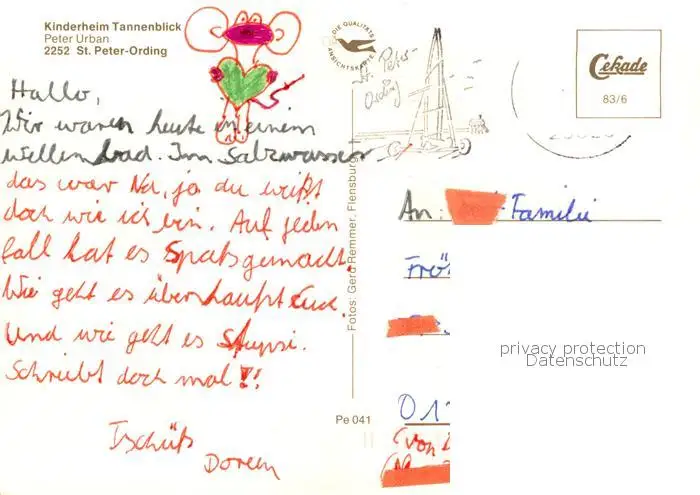 Kinderheim Tannenblick
Peter Urban
2252 St. Peter-Ording
Hallo,
Wir waren heute in einem
Wellenbad. Im Salzwasser
das war Na, ja du weißt
doch wie ich bin. Auf jeden
fall hat es Spaßgemacht.
Wie geht es überhaupt Euch.
Und wie geht es Stupsi.
Schreibt doch mal!!
Tschüß
Doreen
DIE QUALITÄTS
ANSICHTSKARTE
St. Peter-
Ording
Fotos: Gerd Remmer, Flensburg
Pe 041
Cekade
83/6
An: Familie
Frö
privacy protection
Datenschutz
(von